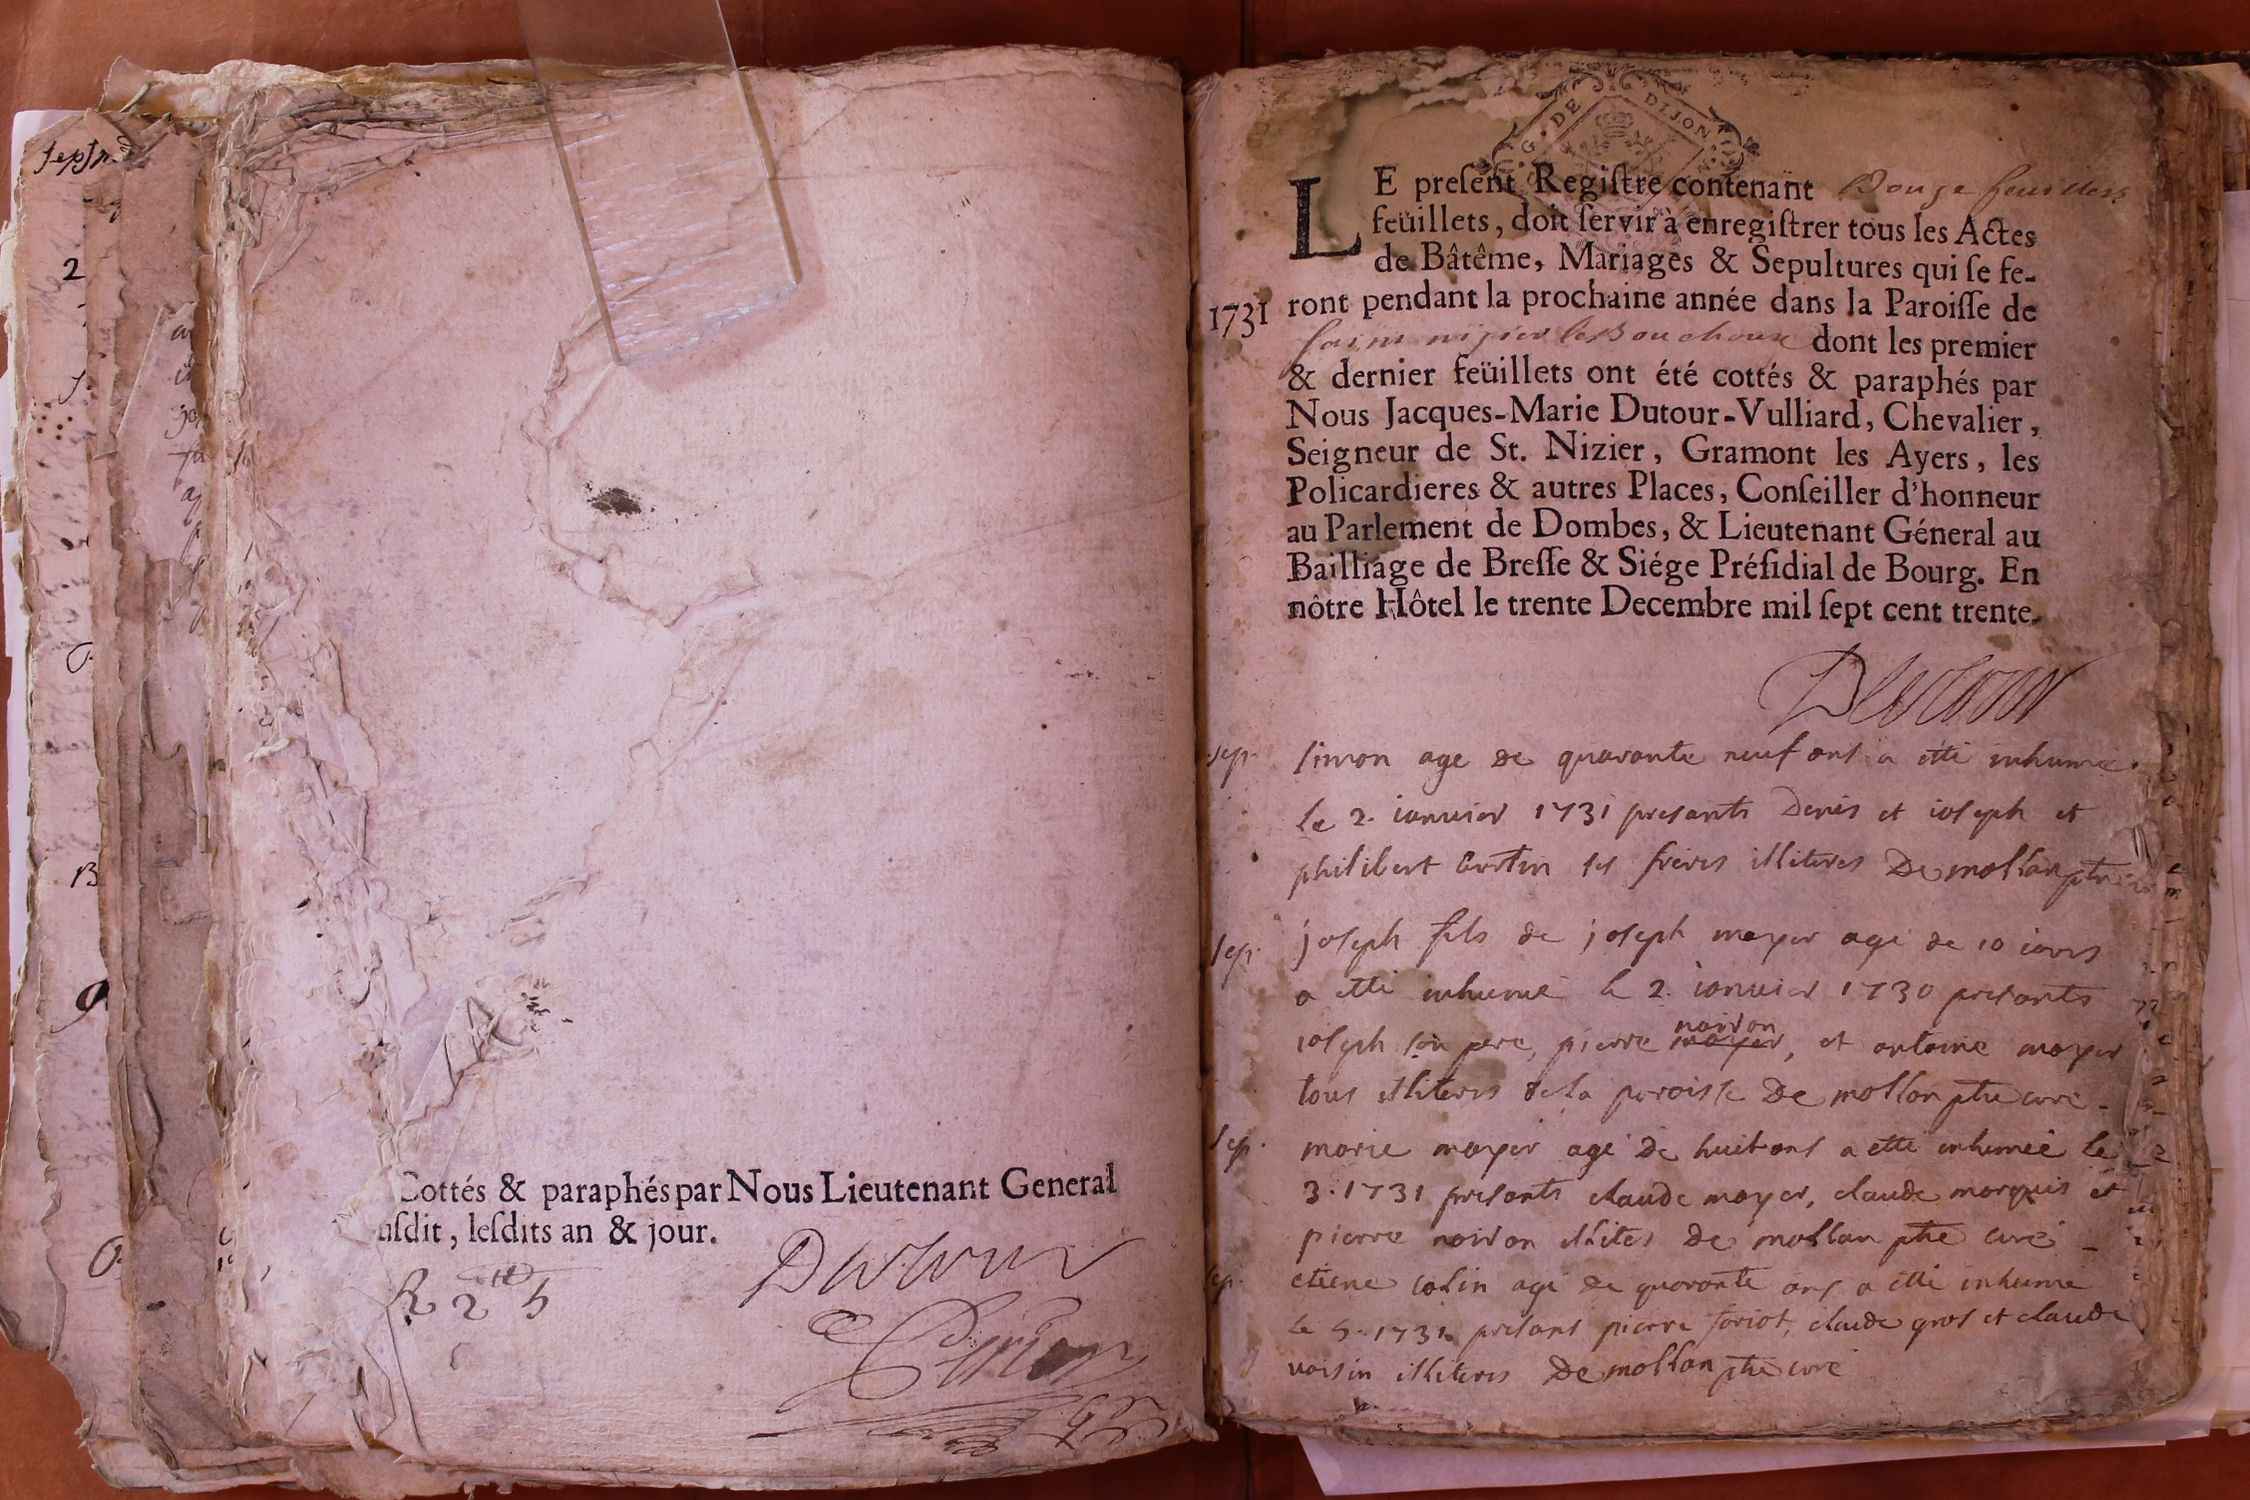 septr.
2
Cottés & paraphés par Nous Lieutenant General
usdit, lesdits an & jour.
Dutour
G. DE DIJON
LE present Registre contenant Douze feuillets
feüillets, doit servir à enregistrer tous les Actes
de Bâtême, Mariages & Sepultures qui se fe-
1731 ront pendant la prochaine année dans la Paroisse de
saint nizier le Bouchoux dont les premier
& dernier feüillets ont été cottés & paraphés par
Nous Jacques-Marie Dutour-Vulliard, Chevalier,
Seigneur de St. Nizier, Gramont les Ayers, les
Policardieres & autres Places, Conseiller d'honneur
au Parlement de Dombes, & Lieutenant Géneral au
Bailliage de Bresse & Siége Présidial de Bourg. En
nôtre Hôtel le trente Decembre mil sept cent trente.
Dutour
sep. simon age de quarante neuf ans a etté inhumé
le 2. ianvier 1731 presants Denis et ioseph et
philibert ses freres illiteres De mollan ptre
sep. joseph fils de joseph moyer agé de 10 iours
a etté inhumé le 2. ianvier 1730 presants
ioseph son pere, pierre moyer noiron, et antoine moyer
tous illiteres de la paroisse De mollan ptre curé
sep. marie moyer agé de huit ans a etté inhumée le
3. 1731 presants claude moyer, claude marquis et
pierre noiron illites De mollan ptre curé
sep. etiene colin agé de quarante ans a etté inhumé
le 5. 1731. presant pierre foriot, claude gros et claude
voisin illiteres De mollan ptre curé